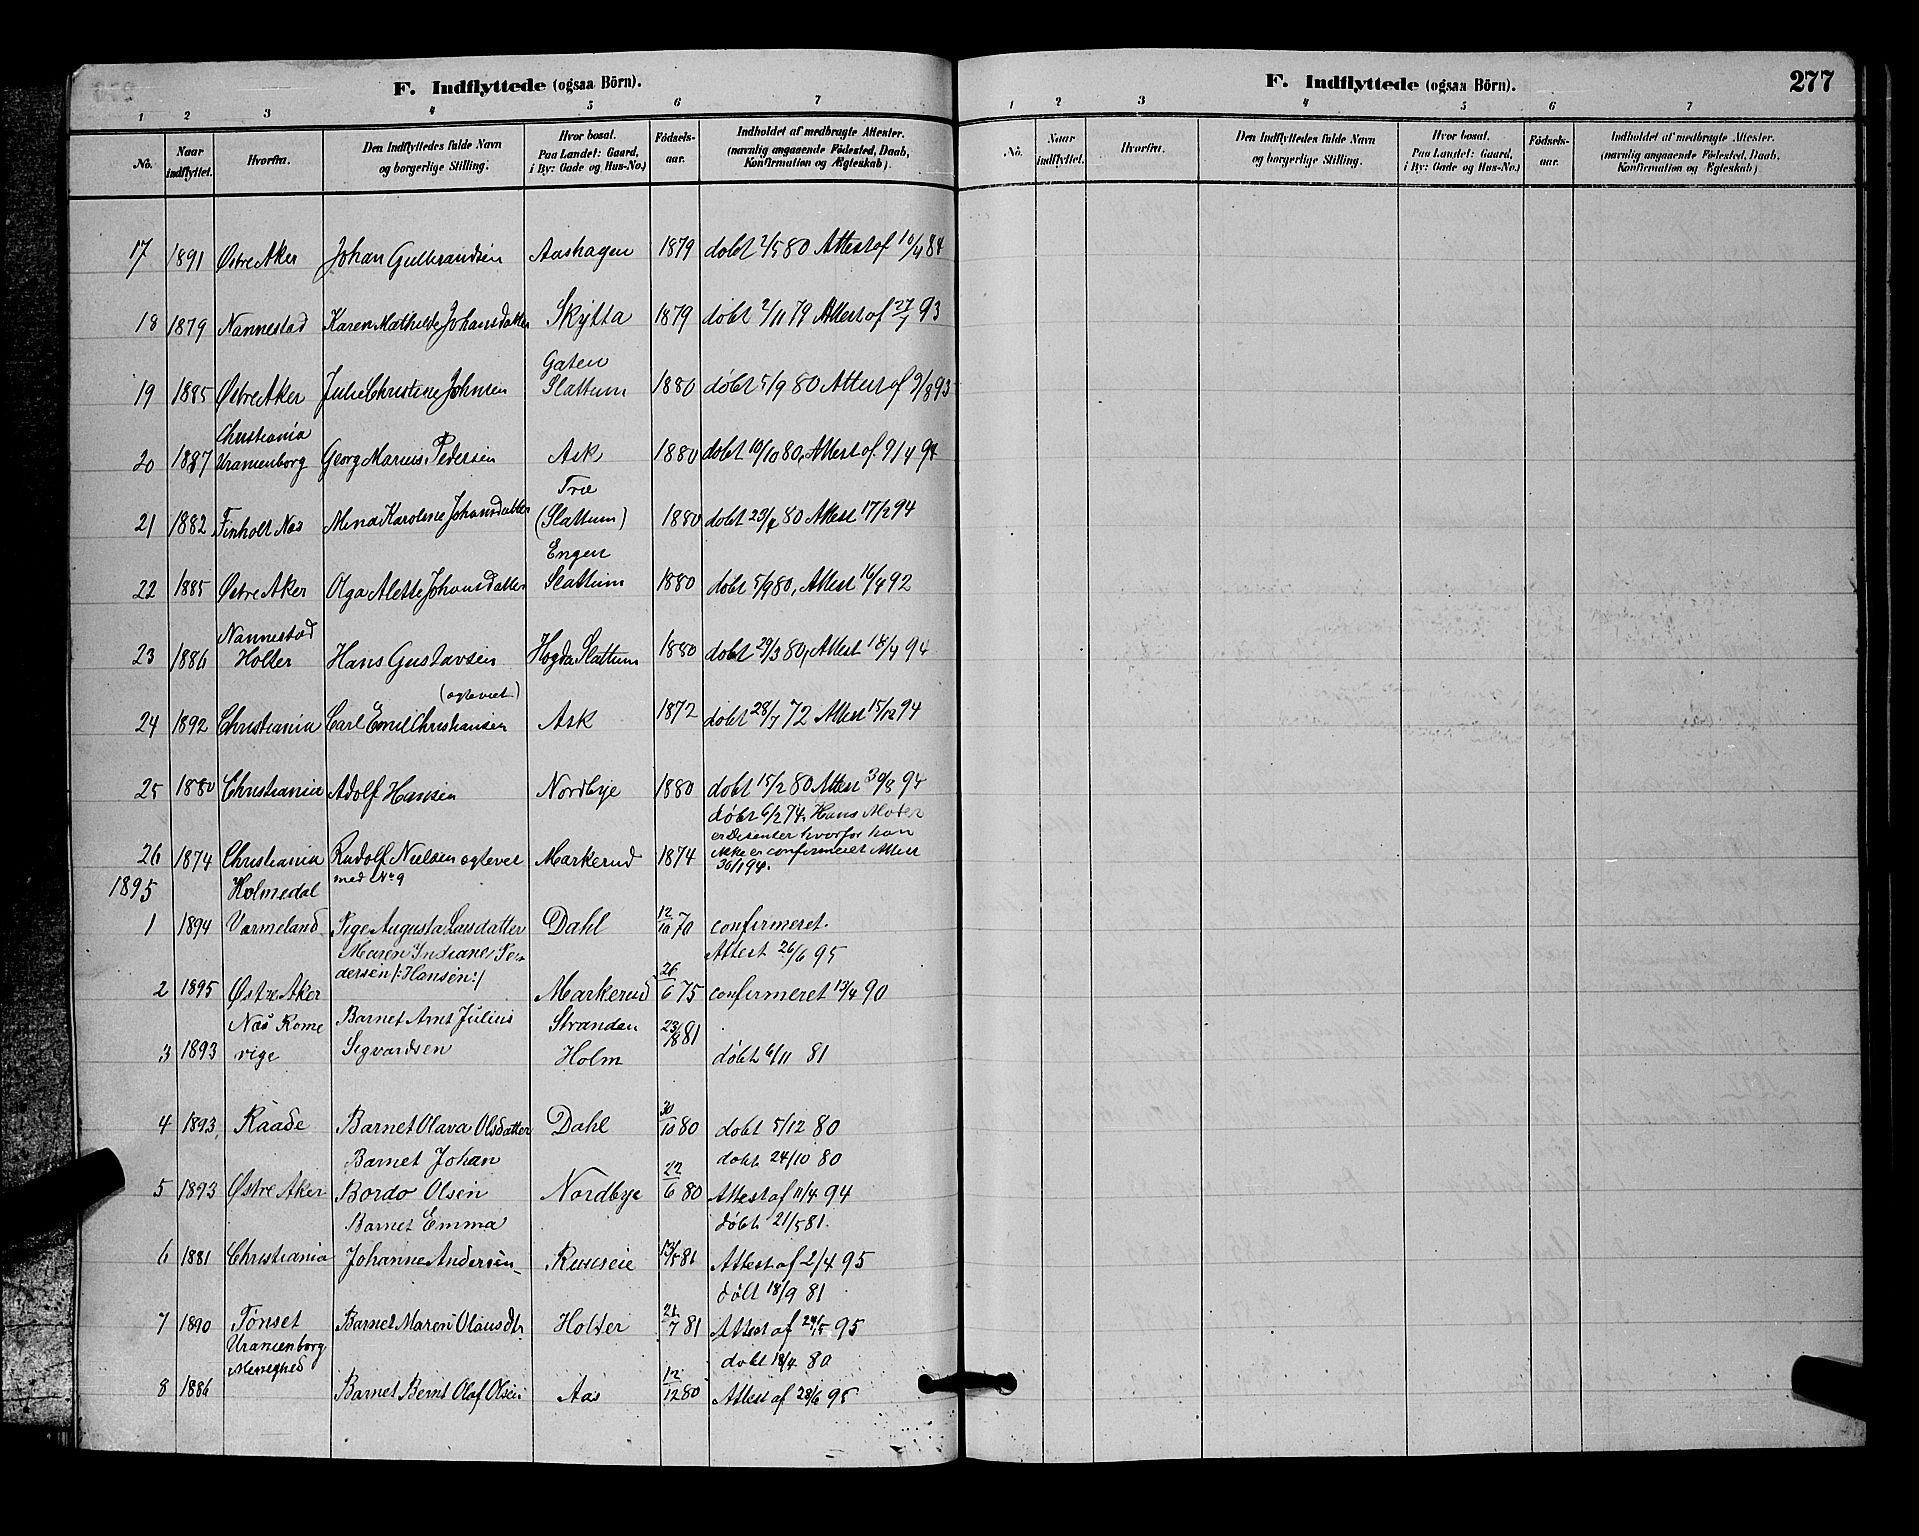 F. Indflyttede (ogsaa Börn).
1 2 3 4 5 6 7
No. Naar indflyttet. Hvorfra. Den Indflyttedes fulde Navn og borgerlige Stilling. Hvor bosat. Paa Landet: Gaard, i By: Gade og Hus-No.) Födsels-aar. Indholdet af medbragte Attester. (navnlig angaaende Födested, Daab, Konfirmation og Ægteskab).
17 1891 Østre Aker Johan Gulbrandsen Aashagen 1879 døbt 2/5 80 Attest af 10/4 84
18 1879 Nannestad Karen Mathilde Johansdatter Skytta 1879 døbt 2/11 79 Attest af 27/7 93
Gaten
19 1885 Østre Aker Julie Christine Johnsen Slattum 1880 døbt 5/9 80 Attest af 9/8 93
Christiania
20 1887 Uranienborg Georg Marius Pedersen Ask 1880 døbt 10/10 80, Attest af 9/4 94
Træ
21 1882 Finholt Næs Mina Karoline Johansdatter (Slattum) 1880 døbt 23/ 80 Attest 17/2 94
Engen
22 1885 Østre Aker Olga Alette Johansdatter Slattum 1880 døbt 5/9 80, Attest 16/4 92
Nannestad
23 1886 Holter Hans Gustavsen Høgda Slattum 1880 døbt 29/3 80, Attest 18/4 94
(ogteviet)
24 1892 Christiania Carl Emil Christiansen Ask 1872 døbt 28/7 72 Attest 15/12 94
25 1880 Christiania Adolf Hansen Nordbye 1880 døbt 15/2 80 Attest 30/8 94
døbt 6/2 74. Hans Moder
er Desenter hvorfor han
26 1874 Christiania Rudolf Nielsen ogteviet Markerud 1874 ikke er confirmeret Attest
med No 9 30/1 94.
1895 Holmedal
1 1894 Varmeland Pige Augusta Larsdatter Dahl 12/10 70 confirmeret.
Maren Indiane Pe- Attest 26/6 95
dersen /:Hansen:/
2 1895 Østre Aker Markerud 26/6 75 confirmeret 13/4 90
Næs Rome Barnet Arnt Julius Stranden
3 1893 rige Sigvardsen Holm 23/8 81 døbt 6/11 81
4 1893, Raade Barnet Olava Olsdatter Dahl 30/10 80 døbt 5/12 80
Barnet Johan døbt 24/10 80
5 1893 Østre Aker Bordo Olsen Nordbye 22/6 80 Attest af 11/4 94
Barnet Emma døbt 21/5 81.
6 1881 Christiania Johanne Andersen Ruuseie 13/5 81 Attest af 2/4 95
døbt 18/9 81
7 1890 Tønset Barnet Maren Olausdtr Holter 21/7 81 Attest af 24/5 95
Uranienborg døbt 18/4 80
Menighed
8 1886 Barnet Bernt Olaf Olsen Aas 12/12 80 Attest af 28/6 95
F. Indflyttede (ogsaa Börn). 277
1 2 3 4 5 6 7
No. Naar indflyttet. Hvorfra. Den Indflyttedes fulde Navn og borgerlige Stilling. Hvor bosat. Paa Landet: Gaard, i By: Gade og Hus-No.) Födsels-aar. Indholdet af medbragte Attester. (navnlig angaaende Födested, Daab, Konfirmation og Ægteskab).